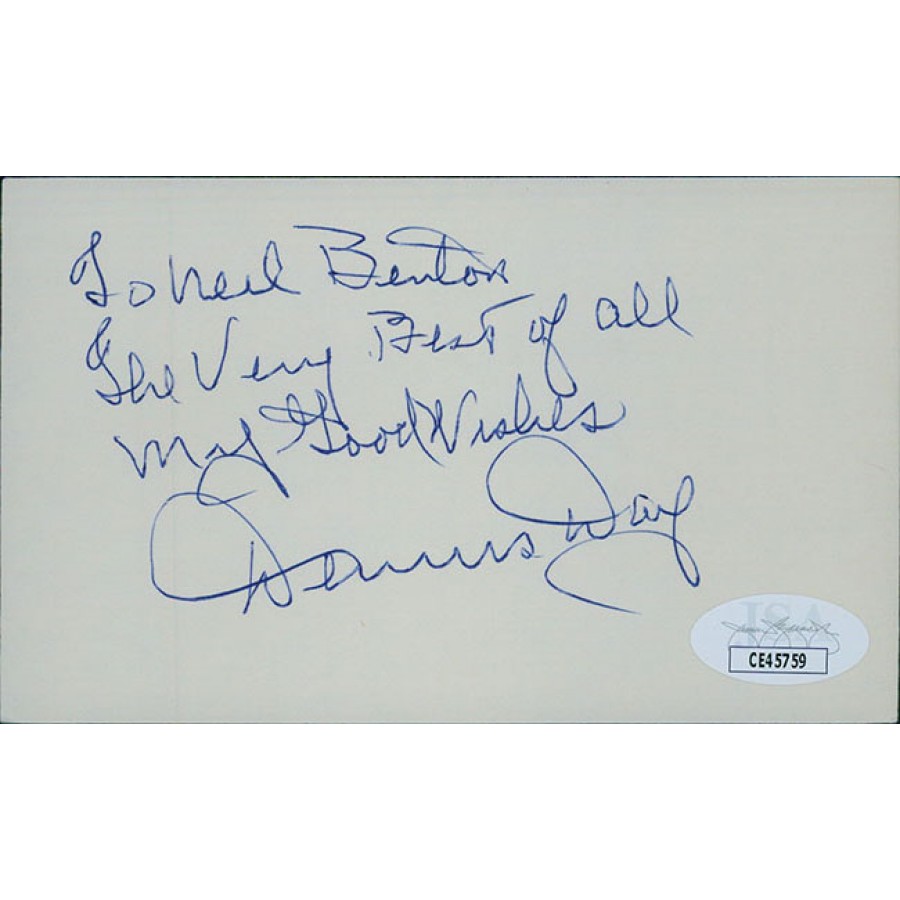 To Neil Benton
The Very Best of all
My Good Wishes
Dennis Day
JSA
CE45759